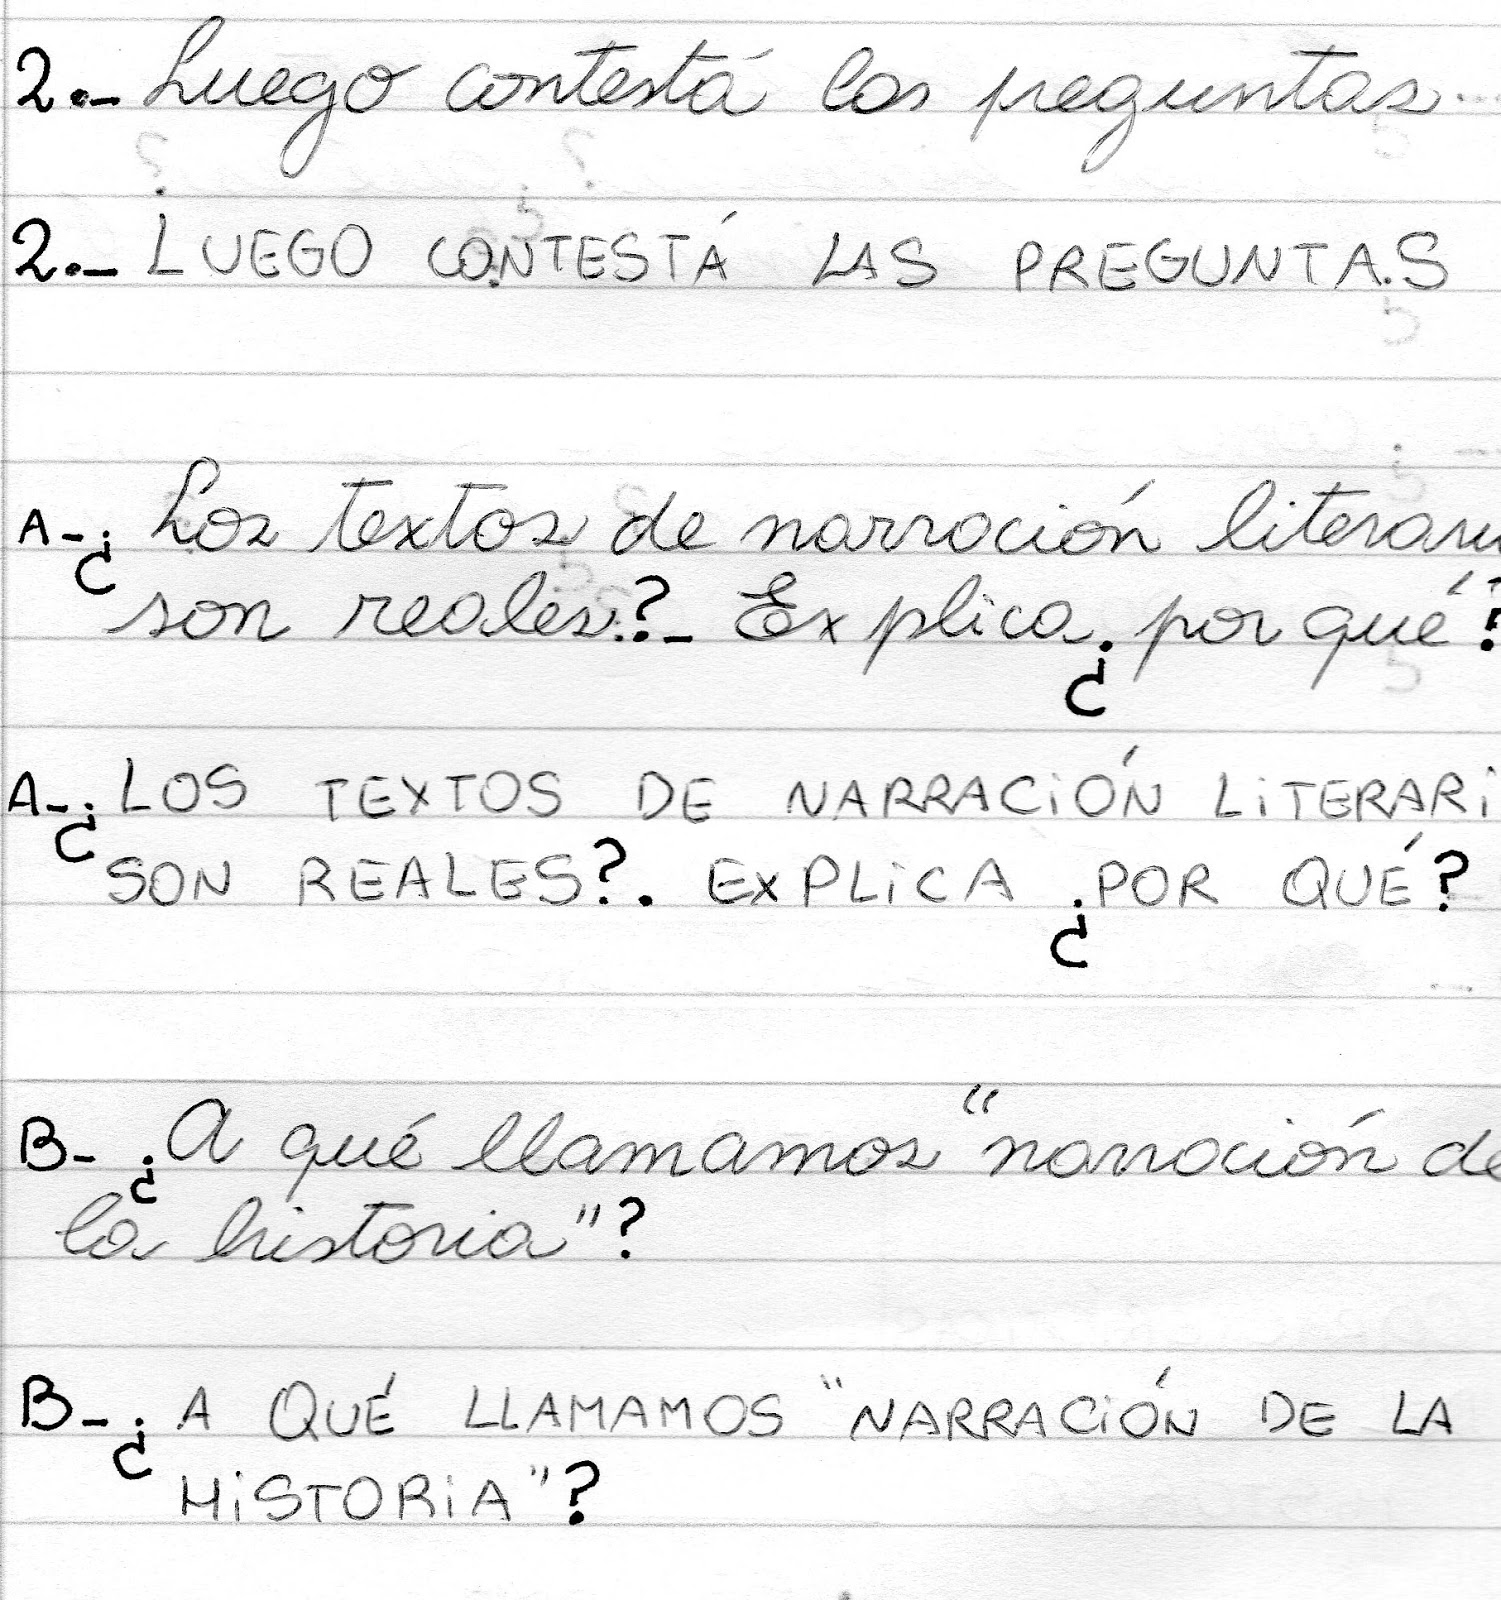 2.- Luego contestá las preguntas...
2.- LUEGO CONTESTÁ LAS PREGUNTAS
A-¿ Los textos de narración literari
son reales?.- Explica ¿por qué?
A-¿ LOS TEXTOS DE NARRACIÓN LITERARI
SON REALES?. EXPLICA ¿POR QUÉ?
B- ¿A qué llamamos "narración de
la historia"?
B-¿ A QUÉ LLAMAMOS "NARRACIÓN DE LA
HISTORIA"?